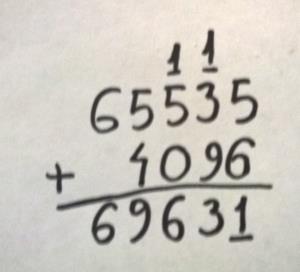 1 1
65535
+ 4096
69631